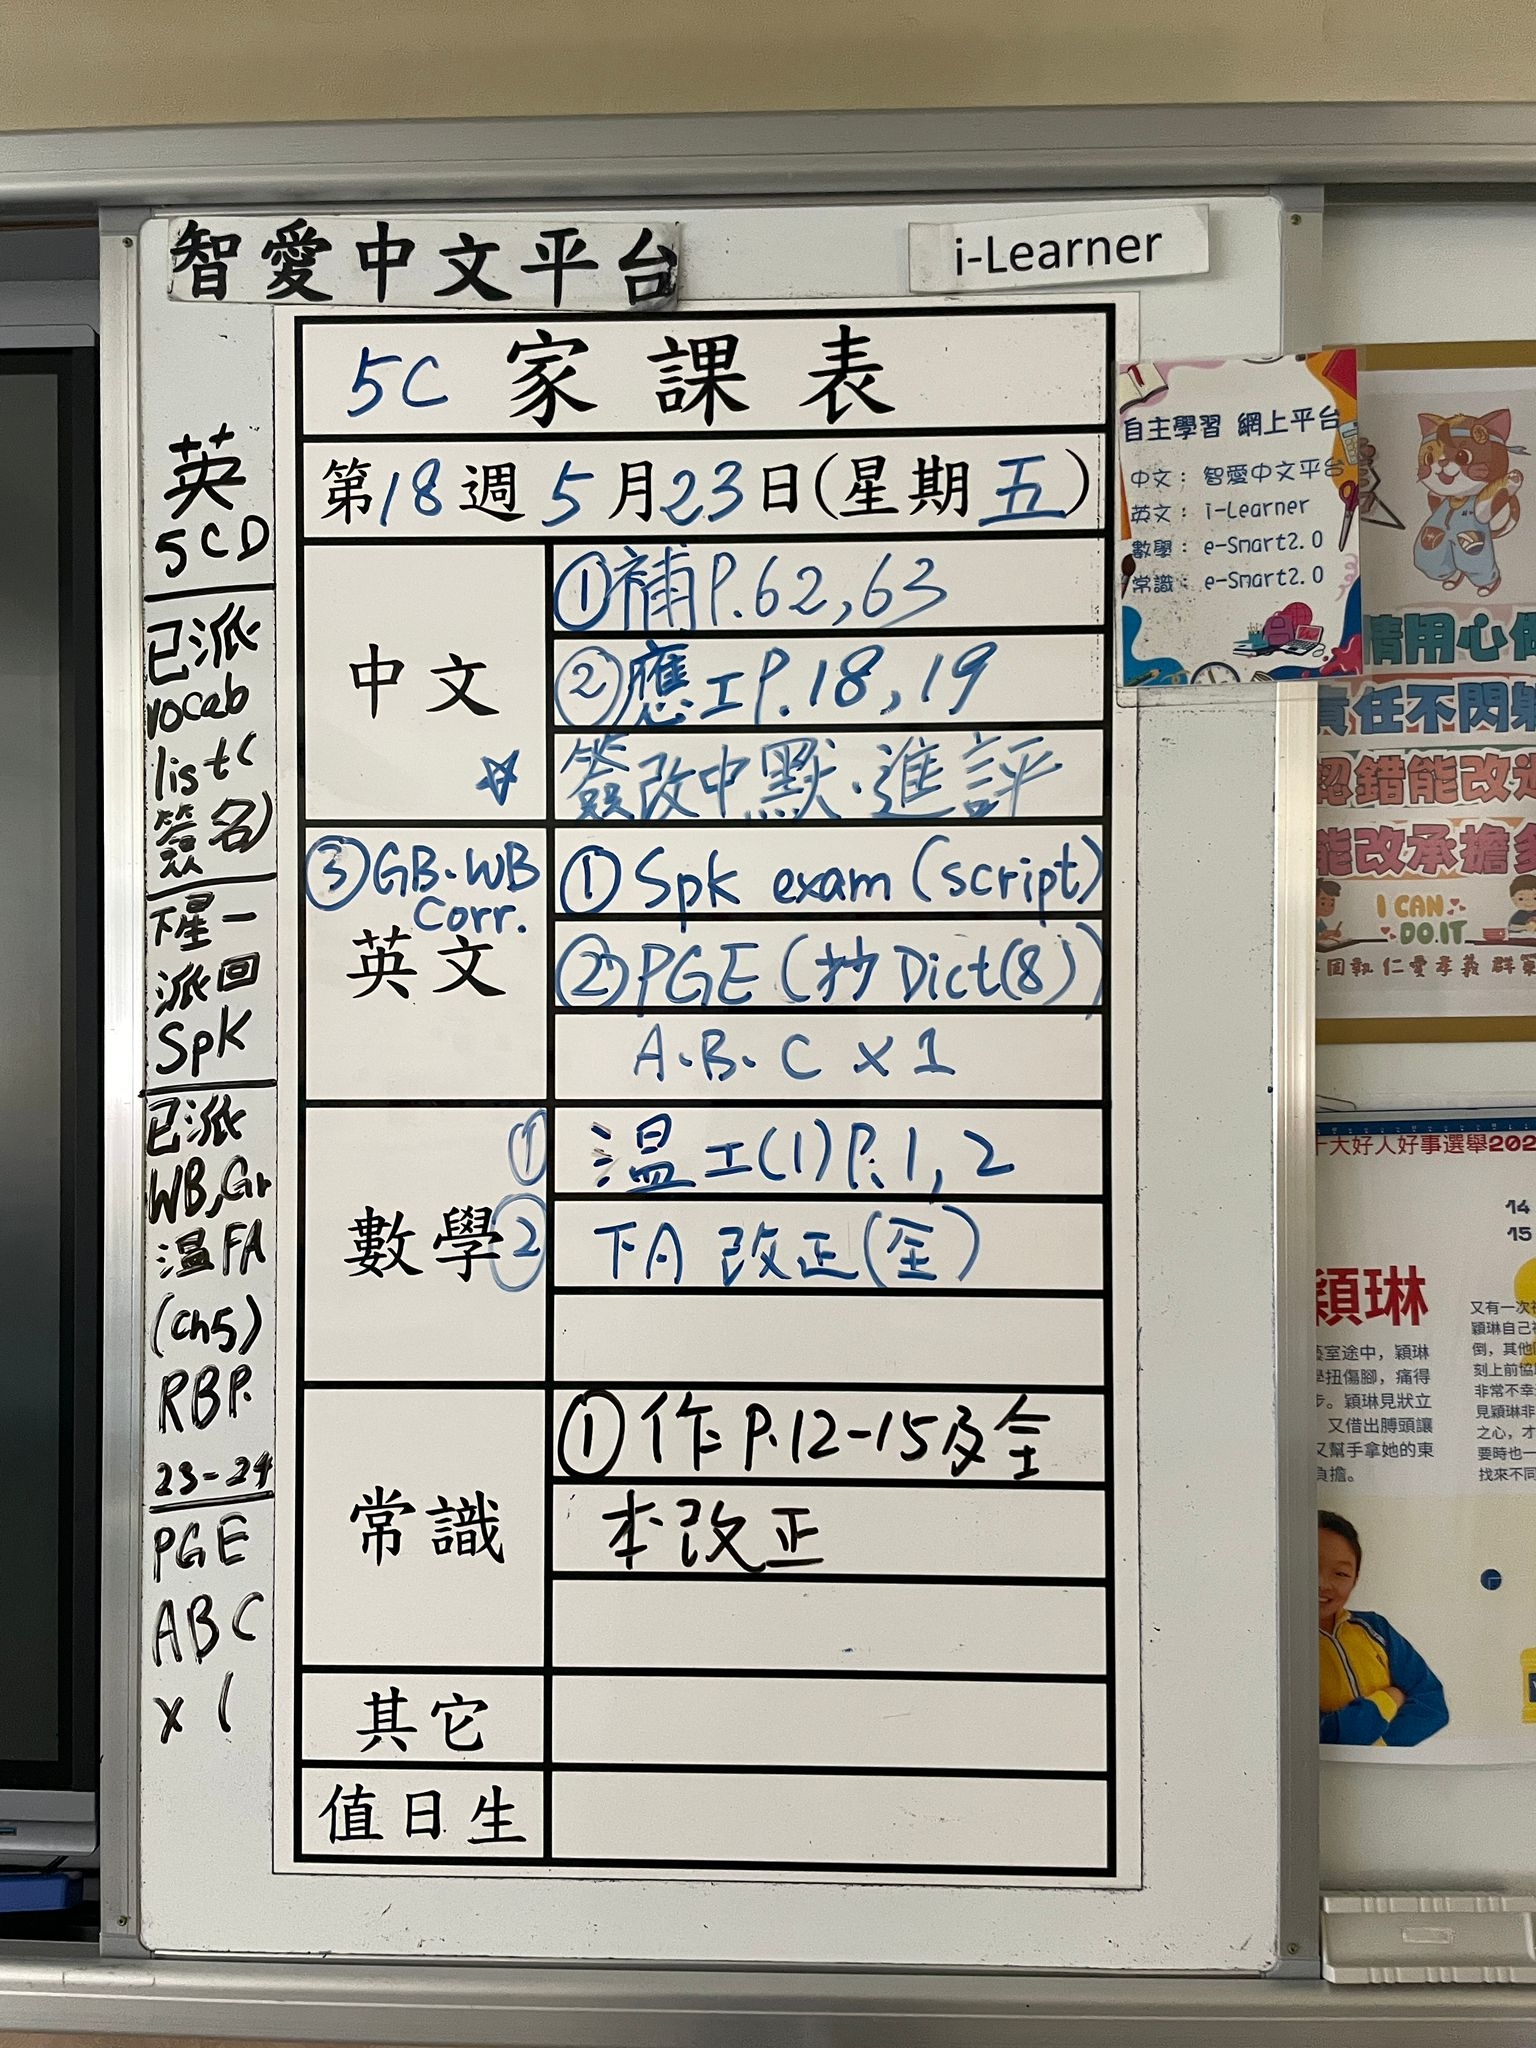 智愛中文平台
i-Learner
5C 家課表
第18週5月23日(星期五)
中文
①補P.62,63
②應工P.18,19
☆簽改中默.進評
英文
①Spk exam (script)
②PGE (抄Dict(8))
A.B.C x 1
③GB.WB
Corr.
數學
①溫工(1)P.1,2
②下A 改正(全)
常識
①作P.12-15及全
本改正
其它
值日生
英
5CD
已派
vocab
list(
簽名)
下星一
派回
Spk
已派
WB,Gr
溫FA
(Ch5)
RBP.
23-24
PGE
ABC
x1
自主學習 網上平台
中文：智愛中文平台
英文：i-Learner
數學：e-Smart2.0
常識：e-Smart2.0
情用心做
責任不閃
認錯能改進
能改承擔多
I CAN
DO IT
仁愛孝義
十大好人好事選舉202
14
15
穎琳
室途中，穎琳
扭傷腳，痛得
步。穎琳見狀立
又借出膊頭讓
又幫手拿她的東
負擔。
又有一次
穎琳自己
倒，其他
刻上前協
非常不幸
見穎琳非
之心，才
要時也一
找來不同